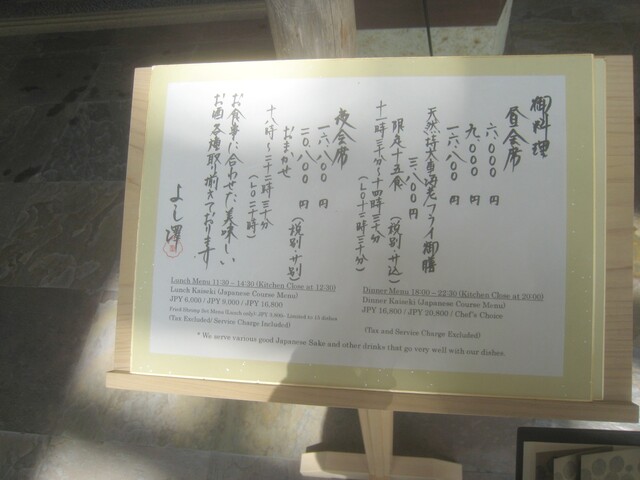 御料理
昼会席
六、〇〇〇円
九、〇〇〇円
一六、八〇〇円
天然特大車海老フライ御膳
三、八〇〇円
限定十五食（税別サ込）
十一時三十分〜十四時三十分
（LO十二時三十分）
夜会席
一六、八〇〇円
二〇、八〇〇円
おまかせ（税別サ別）
十八時〜二十二時三十分
（LO二十時）
お食事に合わせた美味しい
お酒各種取り揃えております
よし澤
Lunch Menu 11:30 – 14:30 (Kitchen Close at 12:30)
Lunch Kaiseki (Japanese Course Menu)
JPY 6,000 / JPY 9,000 / JPY 16,800
Fried Shrimp Set Menu (Lunch only): JPY 3,800- Limited to 15 dishes
(Tax Excluded/ Service Charge Included)
Dinner Menu 18:00 – 22:30 (Kitchen Close at 20:00)
Dinner Kaiseki (Japanese Course Menu)
JPY 16,800 / JPY 20,800 / Chef's Choice
(Tax and Service Charge Excluded)
* We serve various good Japanese Sake and other drinks that go very well with our dishes.